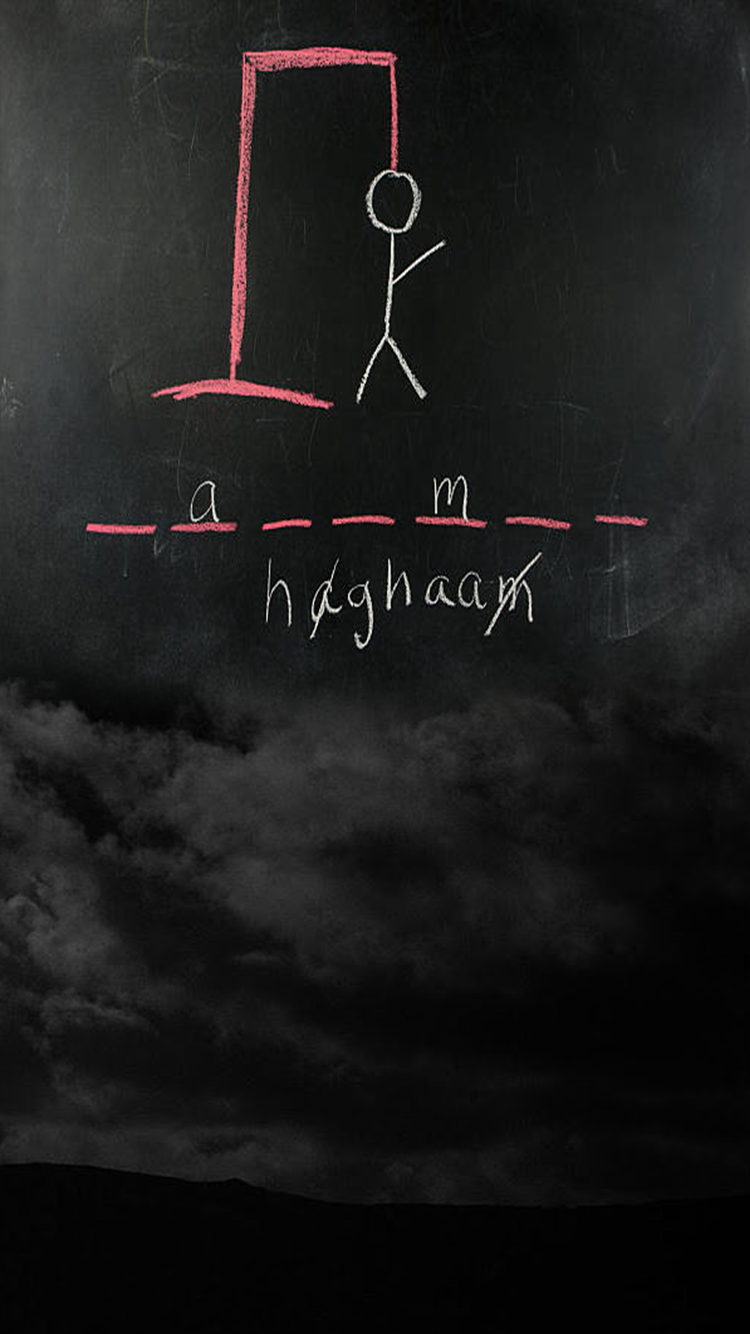 _ a _ _ m _ _
haghaam